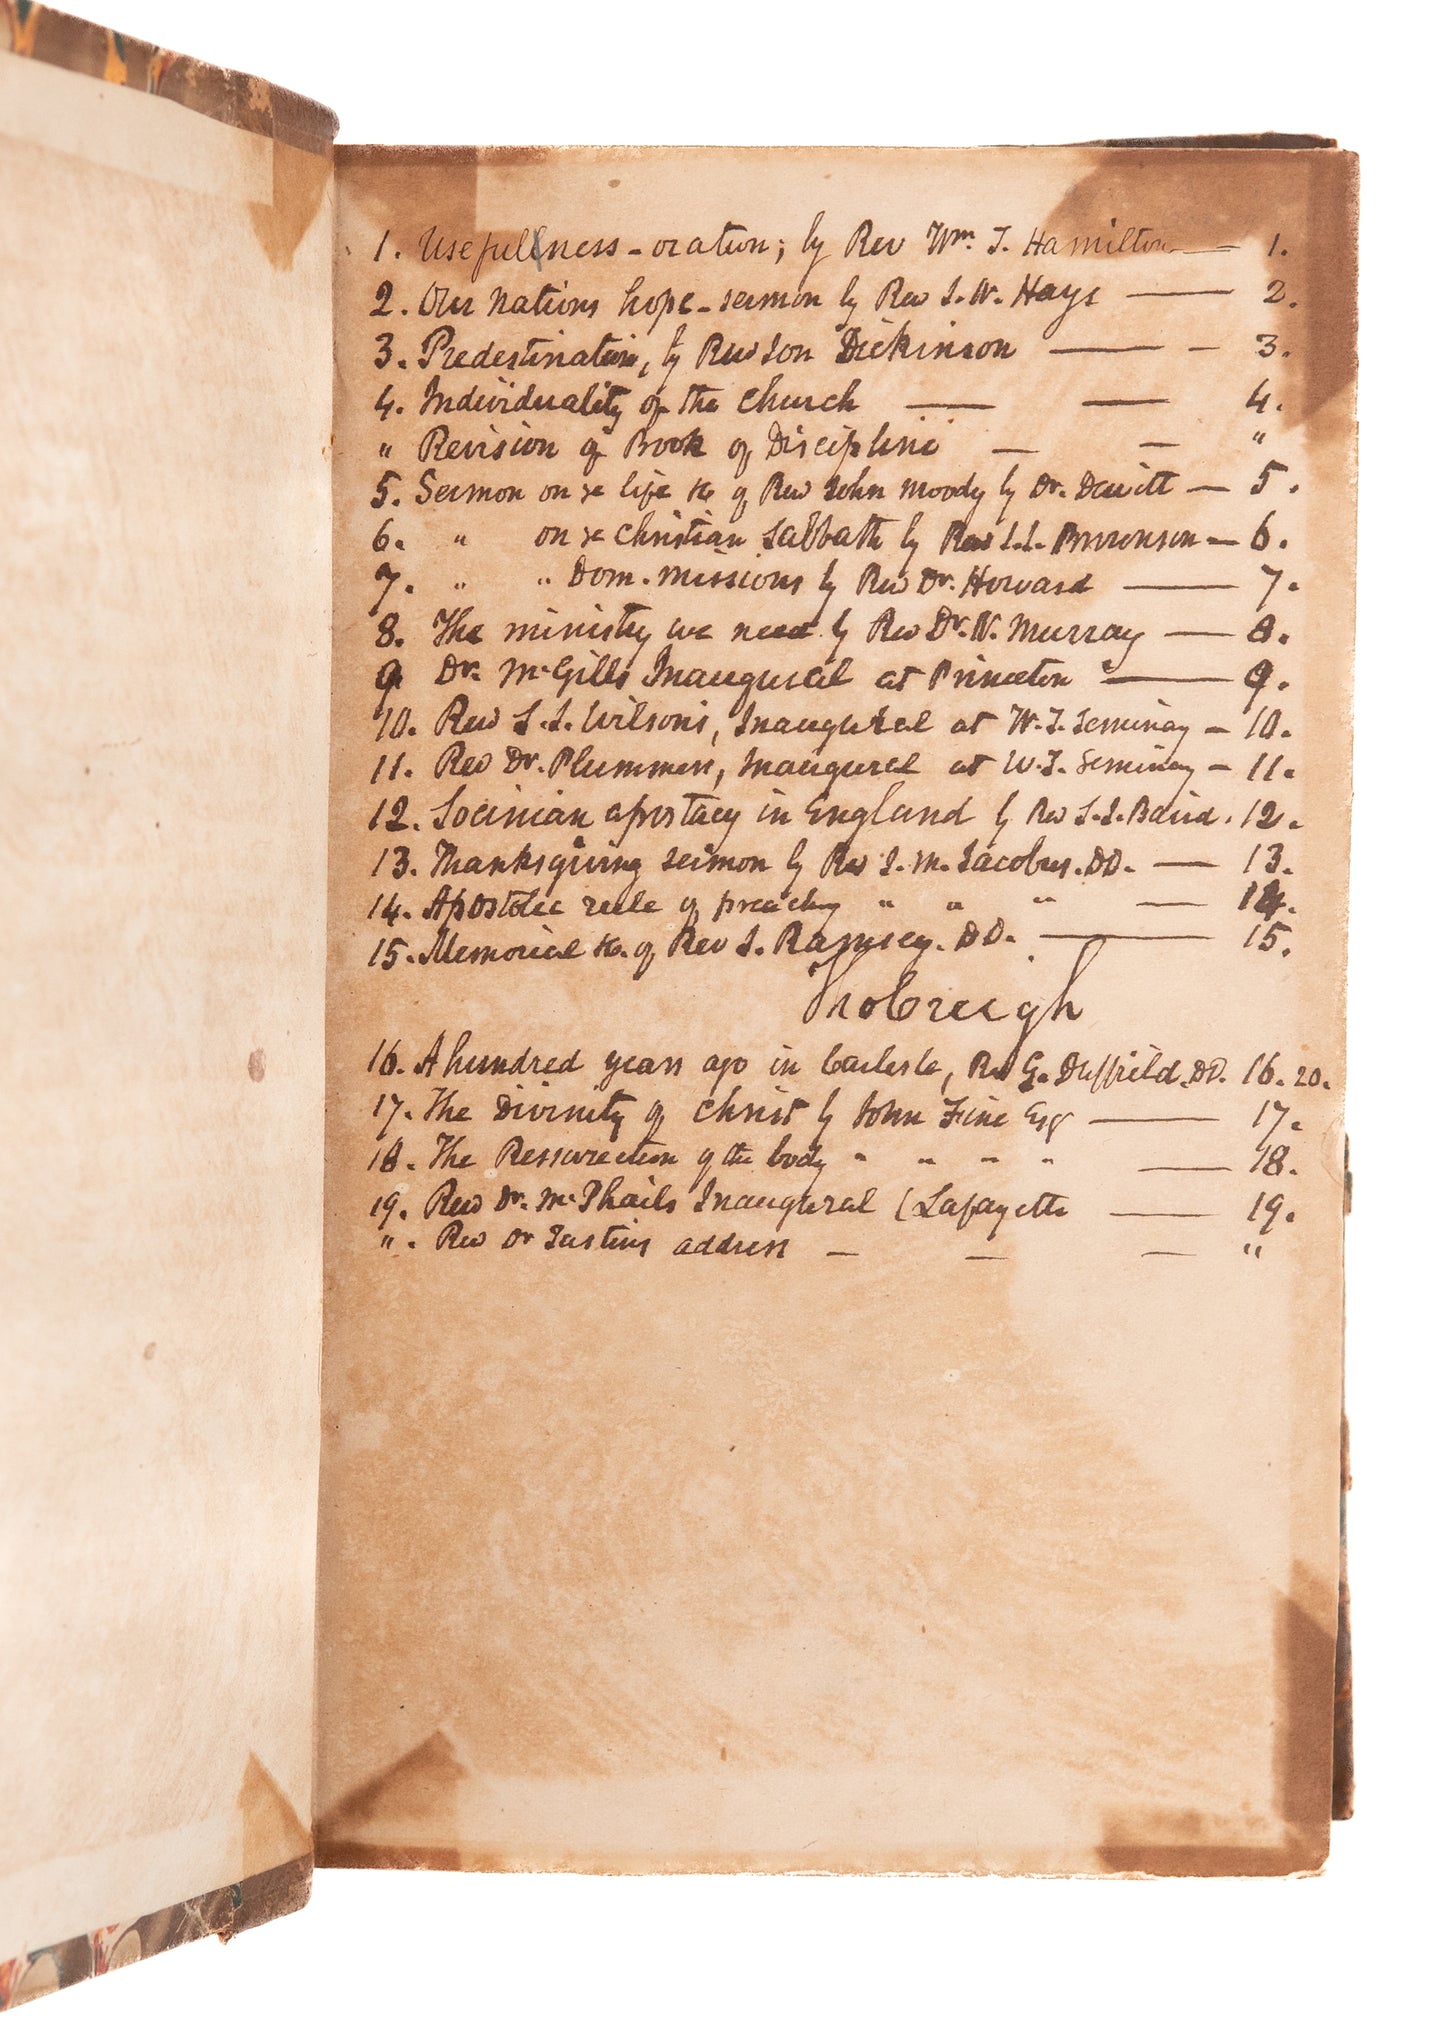 1. Usefullness - oration; by Rev Wm. T. Hamilton — 1.
2. Our Nations hope - sermon by Rev I. W. Hays — 2.
3. Predestination, by Rev Jon Dickinson — — 3.
4. Individuality of the church — — 4.
" Revision of Book of Discipline — — "
5. Sermon on ye life &c of Rev John Moody by Dr. Dewitt — 5.
6. " on ye Christian Sabbath by Rev I. I. Brownson — 6.
7. " " Dom. missions by Rev Dr. Howard — 7.
8. The ministry we need by Rev Dr. N. Murray — 8.
9 Dr. McGills Inaugural at Princeton — 9.
10. Rev S. J. Wilsons, Inaugural at W. T. Seminay — 10.
11. Rev Dr. Plummers, Inaugural at W. T. Seminay — 11.
12. Socinian apostacy in England by Rev S. J. Baird. 12.
13. Thanksgiving sermon by Rev. M. Jacobus. DD. — 13.
14. Apostolic rule of preaching " " " — 14.
15. Memorial &c. of Rev J. Ramsey. DD. — 15.
16. A hundred years ago in Carlisle, Rev G. Duffield. DD. 16. 20.
17. The Divinity of Christ by John Fine Esq — 17.
18. The Ressurection of the body " " " " — 18.
19. Rev Dr. McPhails Inaugural (Lafayette — 19.
" . Rev Dr Junkins address — — — "